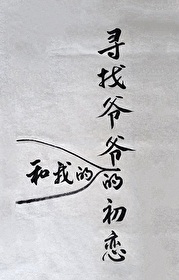 寻找爷爷的初恋
和我的